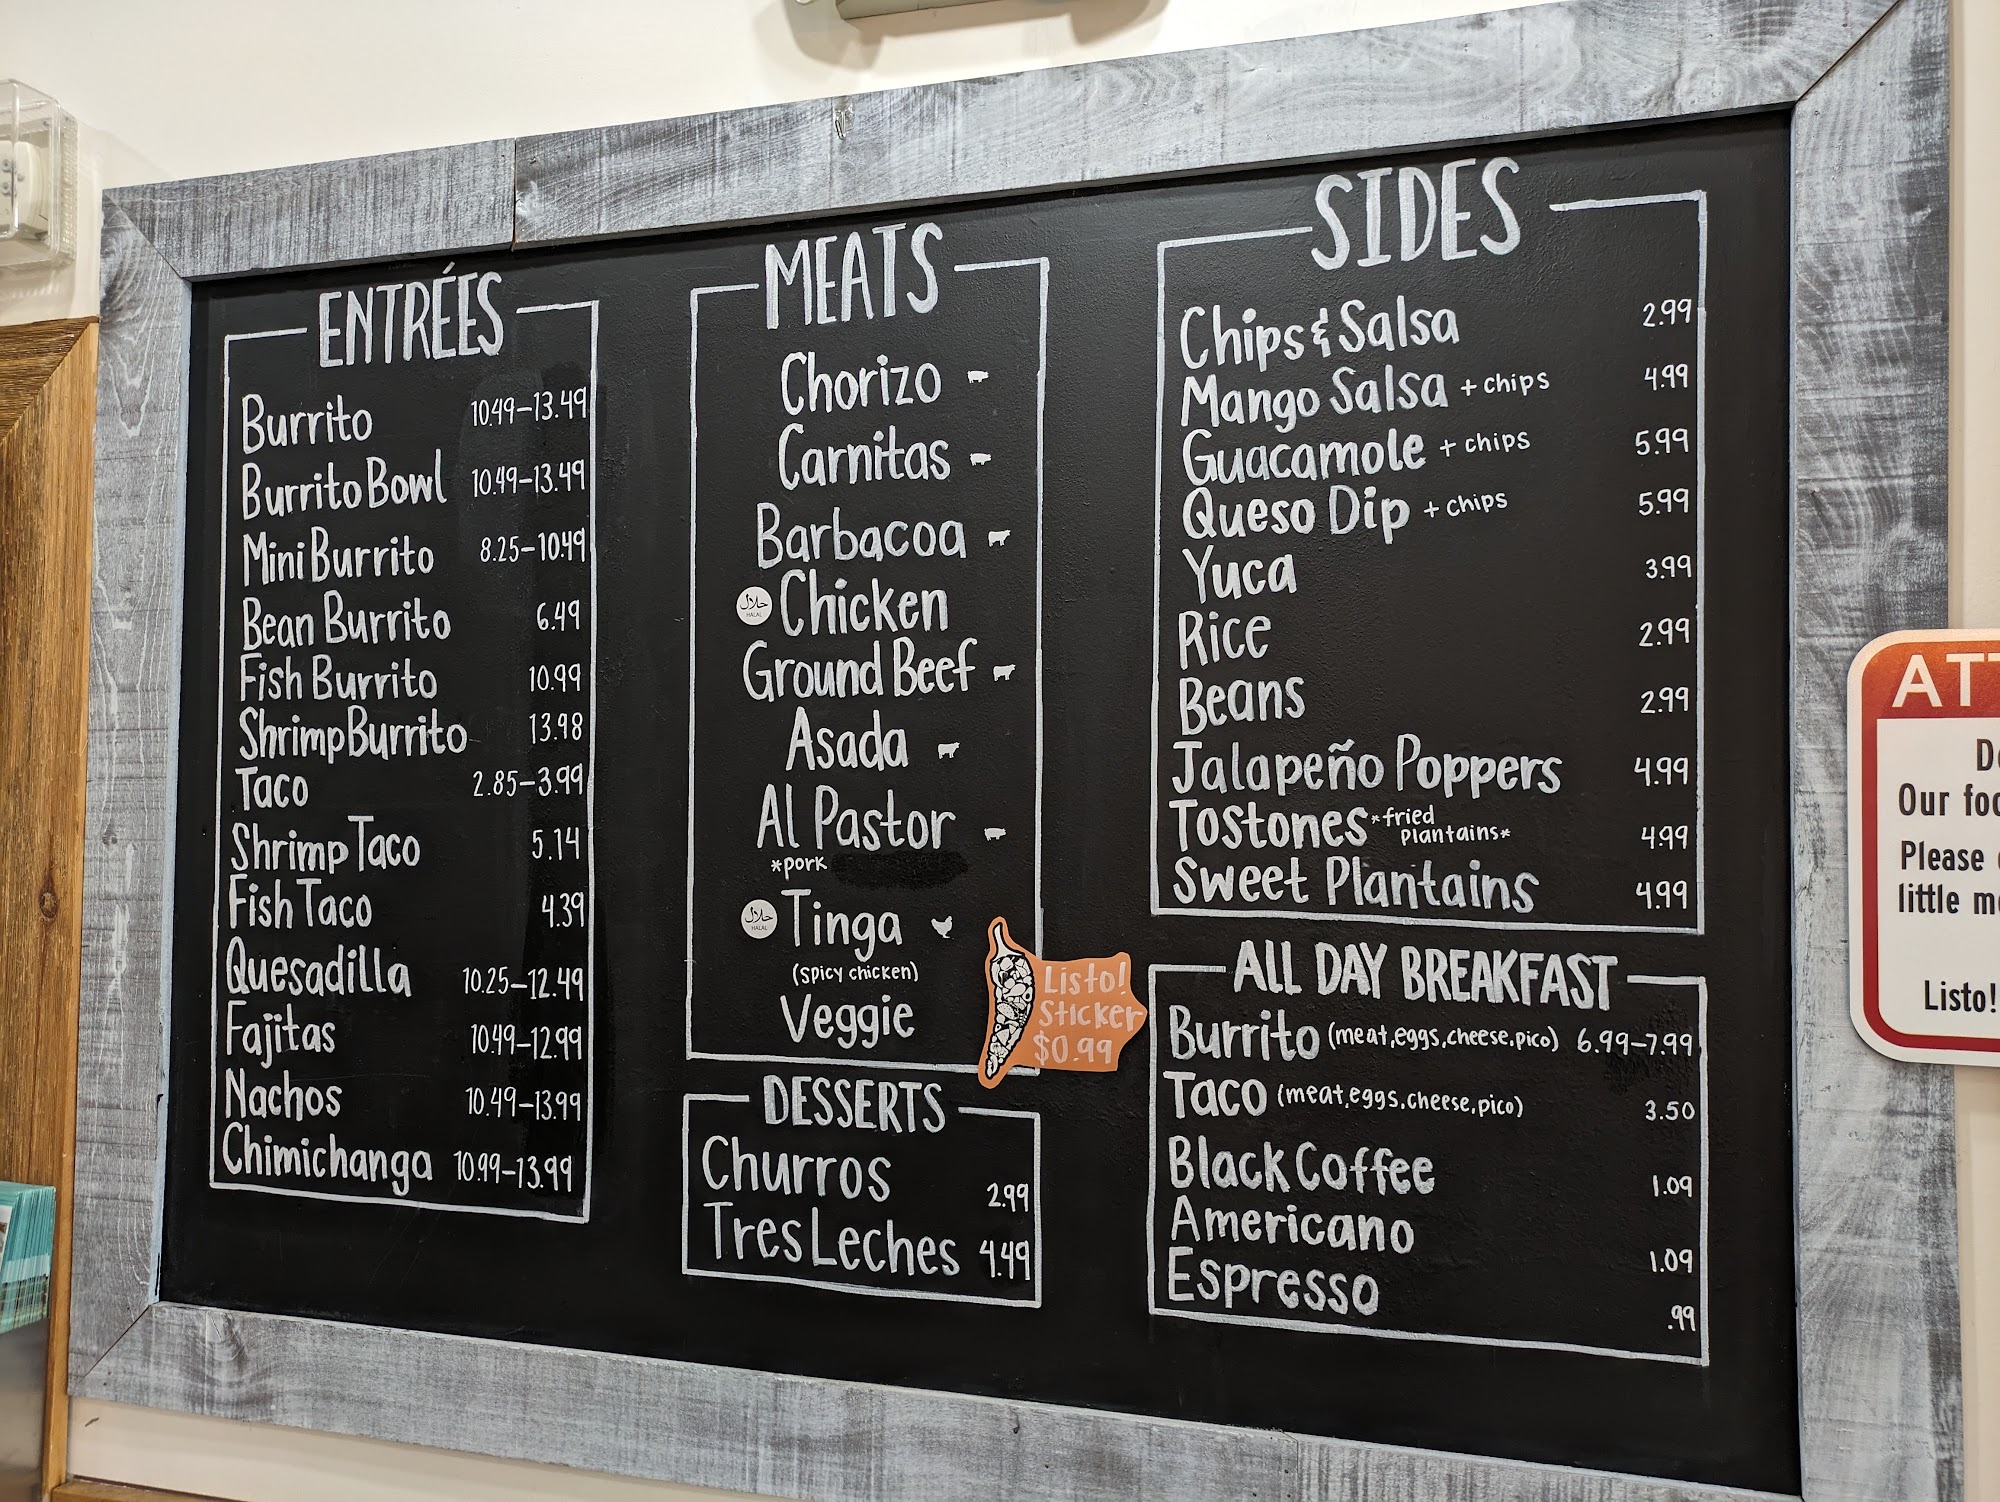 ENTRÉES
Burrito 10.49-13.49
Burrito Bowl 10.49-13.49
Mini Burrito 8.25-10.49
Bean Burrito 6.49
Fish Burrito 10.99
Shrimp Burrito 13.98
Taco 2.85-3.99
Shrimp Taco 5.14
Fish Taco 4.39
Quesadilla 10.25-12.49
Fajitas 10.49-12.99
Nachos 10.49-13.99
Chimichanga 10.99-13.99
MEATS
Chorizo
Carnitas
Barbacoa
حلال
HALAL
Chicken
Ground Beef
Asada
Al Pastor
*pork
حلال
HALAL
Tinga
(spicy chicken)
Veggie
Listo!
Sticker
$0.99
DESSERTS
Churros 2.99
Tres Leches 4.49
SIDES
Chips & Salsa 2.99
Mango Salsa + chips 4.99
Guacamole + chips 5.99
Queso Dip + chips 5.99
Yuca 3.99
Rice 2.99
Beans 2.99
Jalapeño Poppers 4.99
Tostones *fried plantains* 4.99
Sweet Plantains 4.99
ALL DAY BREAKFAST
Burrito (meat,eggs,cheese,pico) 6.99-7.99
Taco (meat,eggs,cheese,pico) 3.50
Black Coffee 1.09
Americano 1.09
Espresso .99
Our
Please
little
Listo!